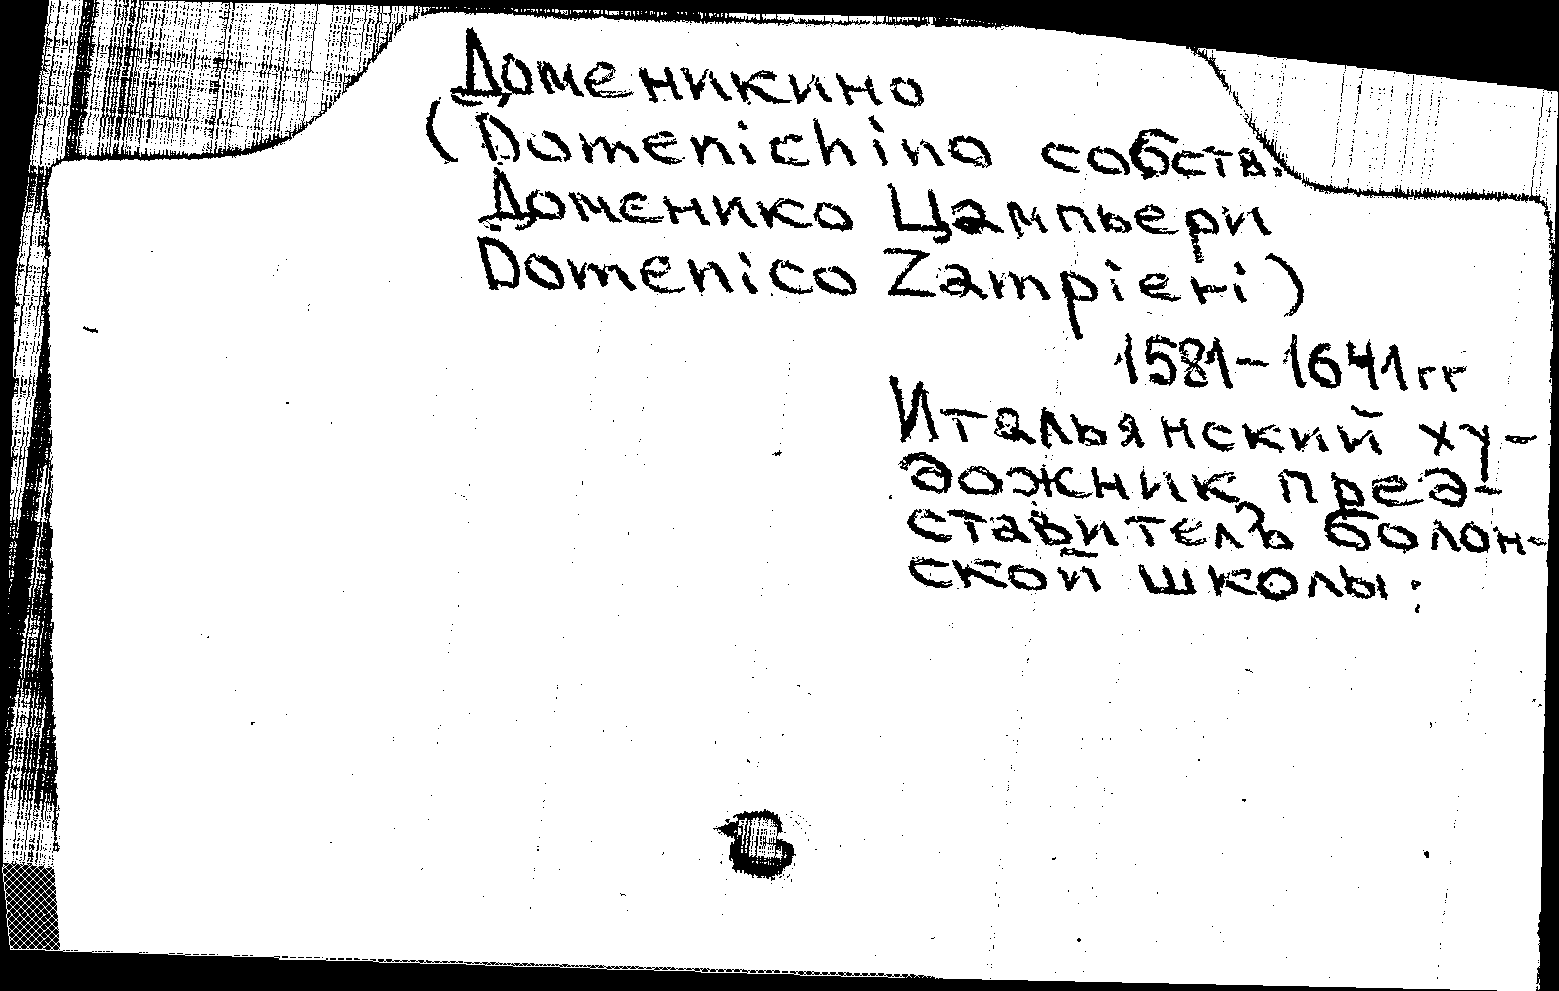 Доменикино
(Domenichino собств.
Доменико Цампьери
Domenico Zampieri)
1581-1641гг
Итальянский ху-
дожник, пред-
ставитель болон-
ской школы.